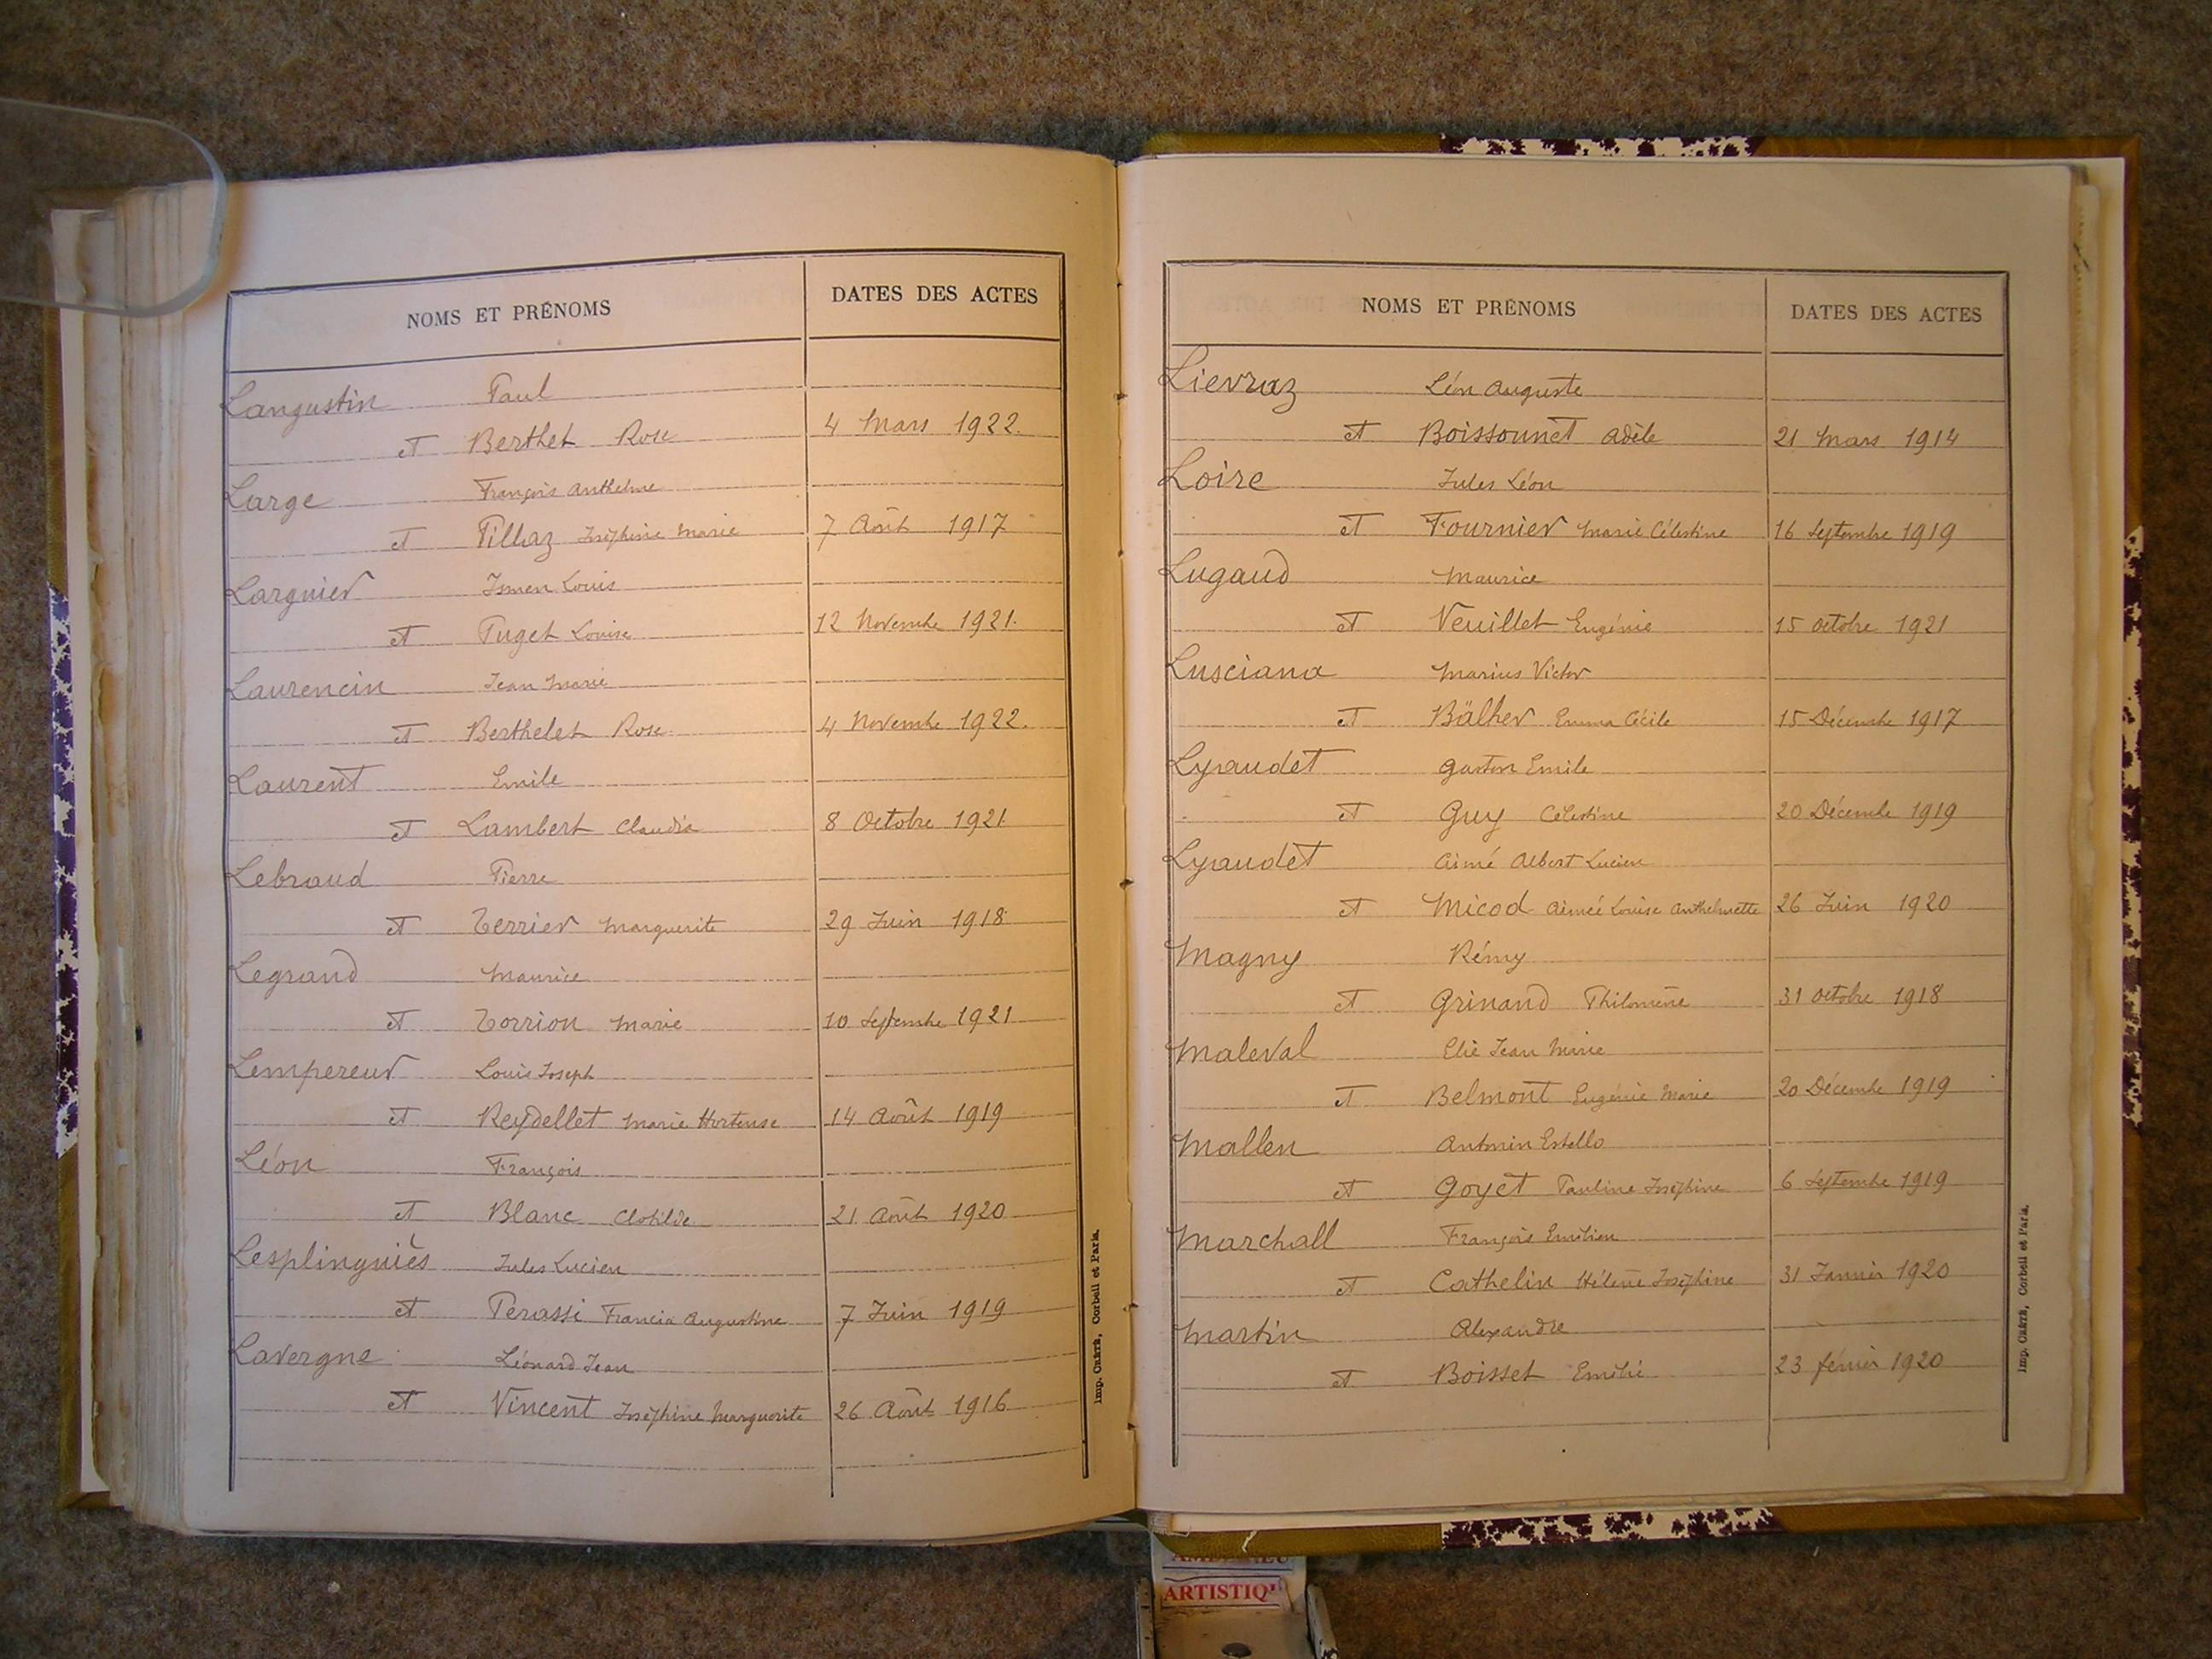 NOMS ET PRÉNOMS DATES DES ACTES
Langustin Paul
et Berthet Rose 4 Mars 1922.
Large François Anthelme
et Pillaz Joséphine Marie 7 Août 1917
Larguier Ismen Louis
et Puget Louise 12 Novembre 1921.
Laurencin Jean Marie
et Berthelet Rose 4 Novembre 1922.
Laurent Emile
et Lambert Claudia 8 Octobre 1921
Lebraud Pierre
et Terrier Marguerite 29 Juin 1918
Legrand Maurice
et Torrion Marie 10 Septembre 1921
Lempereur Louis Joseph
et Reydellet Marie Hortense 14 Août 1919
Léon François
et Blanc Clotilde 21 Août 1920
Lesplinguiès Jules Lucien
et Perassi Francia Augustine 7 Juin 1919
Lavergne Léonard Jean
et Vincent Joséphine Marguerite 26 Août 1916
Imp. CRÉTÉ, Corbeil et Paris.
NOMS ET PRÉNOMS DATES DES ACTES
Lievraz Léon Auguste
et Boissounet Adèle 21 Mars 1914
Loire Jules Léon
et Fournier Marie Célestine 16 Septembre 1919
Lugaud Maurice
et Veuillet Eugénie 15 Octobre 1921
Lusciana Marius Victor
et Bälher Emma Cécile 15 Décembre 1917
Lyaudet Gaston Emile
et Guy Célestine 20 Décembre 1919
Lyaudet Aimé Albert Lucien
et Micod Aimée Louise Anthelmette 26 Juin 1920
Magny Rémy
et Grinand Philomène 31 Octobre 1918
Maleval Elie Jean Marie
et Belmont Eugénie Marie 20 Décembre 1919
Mallen Antonin Estello
et Goyet Pauline Joséphine 6 Septembre 1919
Marchall François Emilien
et Cathelin Hélène Joséphine 31 Janvier 1920
Martin Alexandre
et Boisset Emilie 23 février 1920
Imp. CRÉTÉ, Corbeil et Paris.
ARTISTIQ